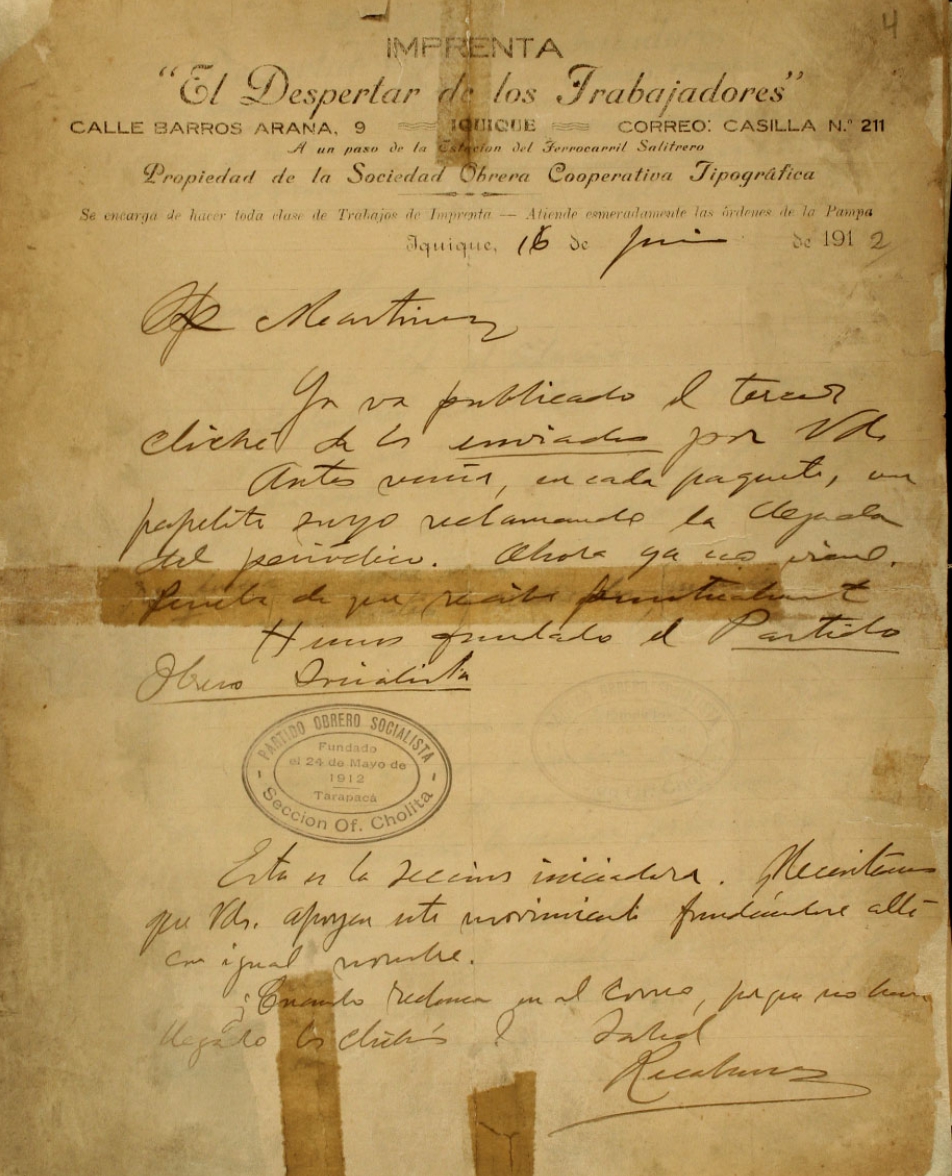 4
IMPRENTA
"El Despertar de los Trabajadores"
CALLE BARROS ARANA, 9 IQUIQUE CORREO: CASILLA N.º 211
A un paso de la Estacion del Ferrocarril Salitrero
Propiedad de la Sociedad Obrera Cooperativa Tipográfica
Se encarga de hacer toda clase de Trabajos de Imprenta — Atiende esmeradamente las órdenes de la Pampa
Iquique, 16 de junio de 1912
Martinez
Ya va publicado el tercer
cliché de los enviados por Vds
Antes venia, en cada paquete, un
papelito suyo reclamando la llegada
del periódico. Ahora ya no viene.
Prueba de que recibe puntualment
Hemos fundado el Partido
Obrero Socialista
PARTIDO OBRERO SOCIALISTA
Fundado
el 24 de Mayo de
1912
Tarapacá
Seccion Of. Cholita
Esta es la seccion iniciadora. Necesitamos
que Vds. apoyen este movimiento fundándose allí
con igual nombre.
¿Cuando reclama en el correo, porque no han
llegado los clichés? Salud
Recabarren